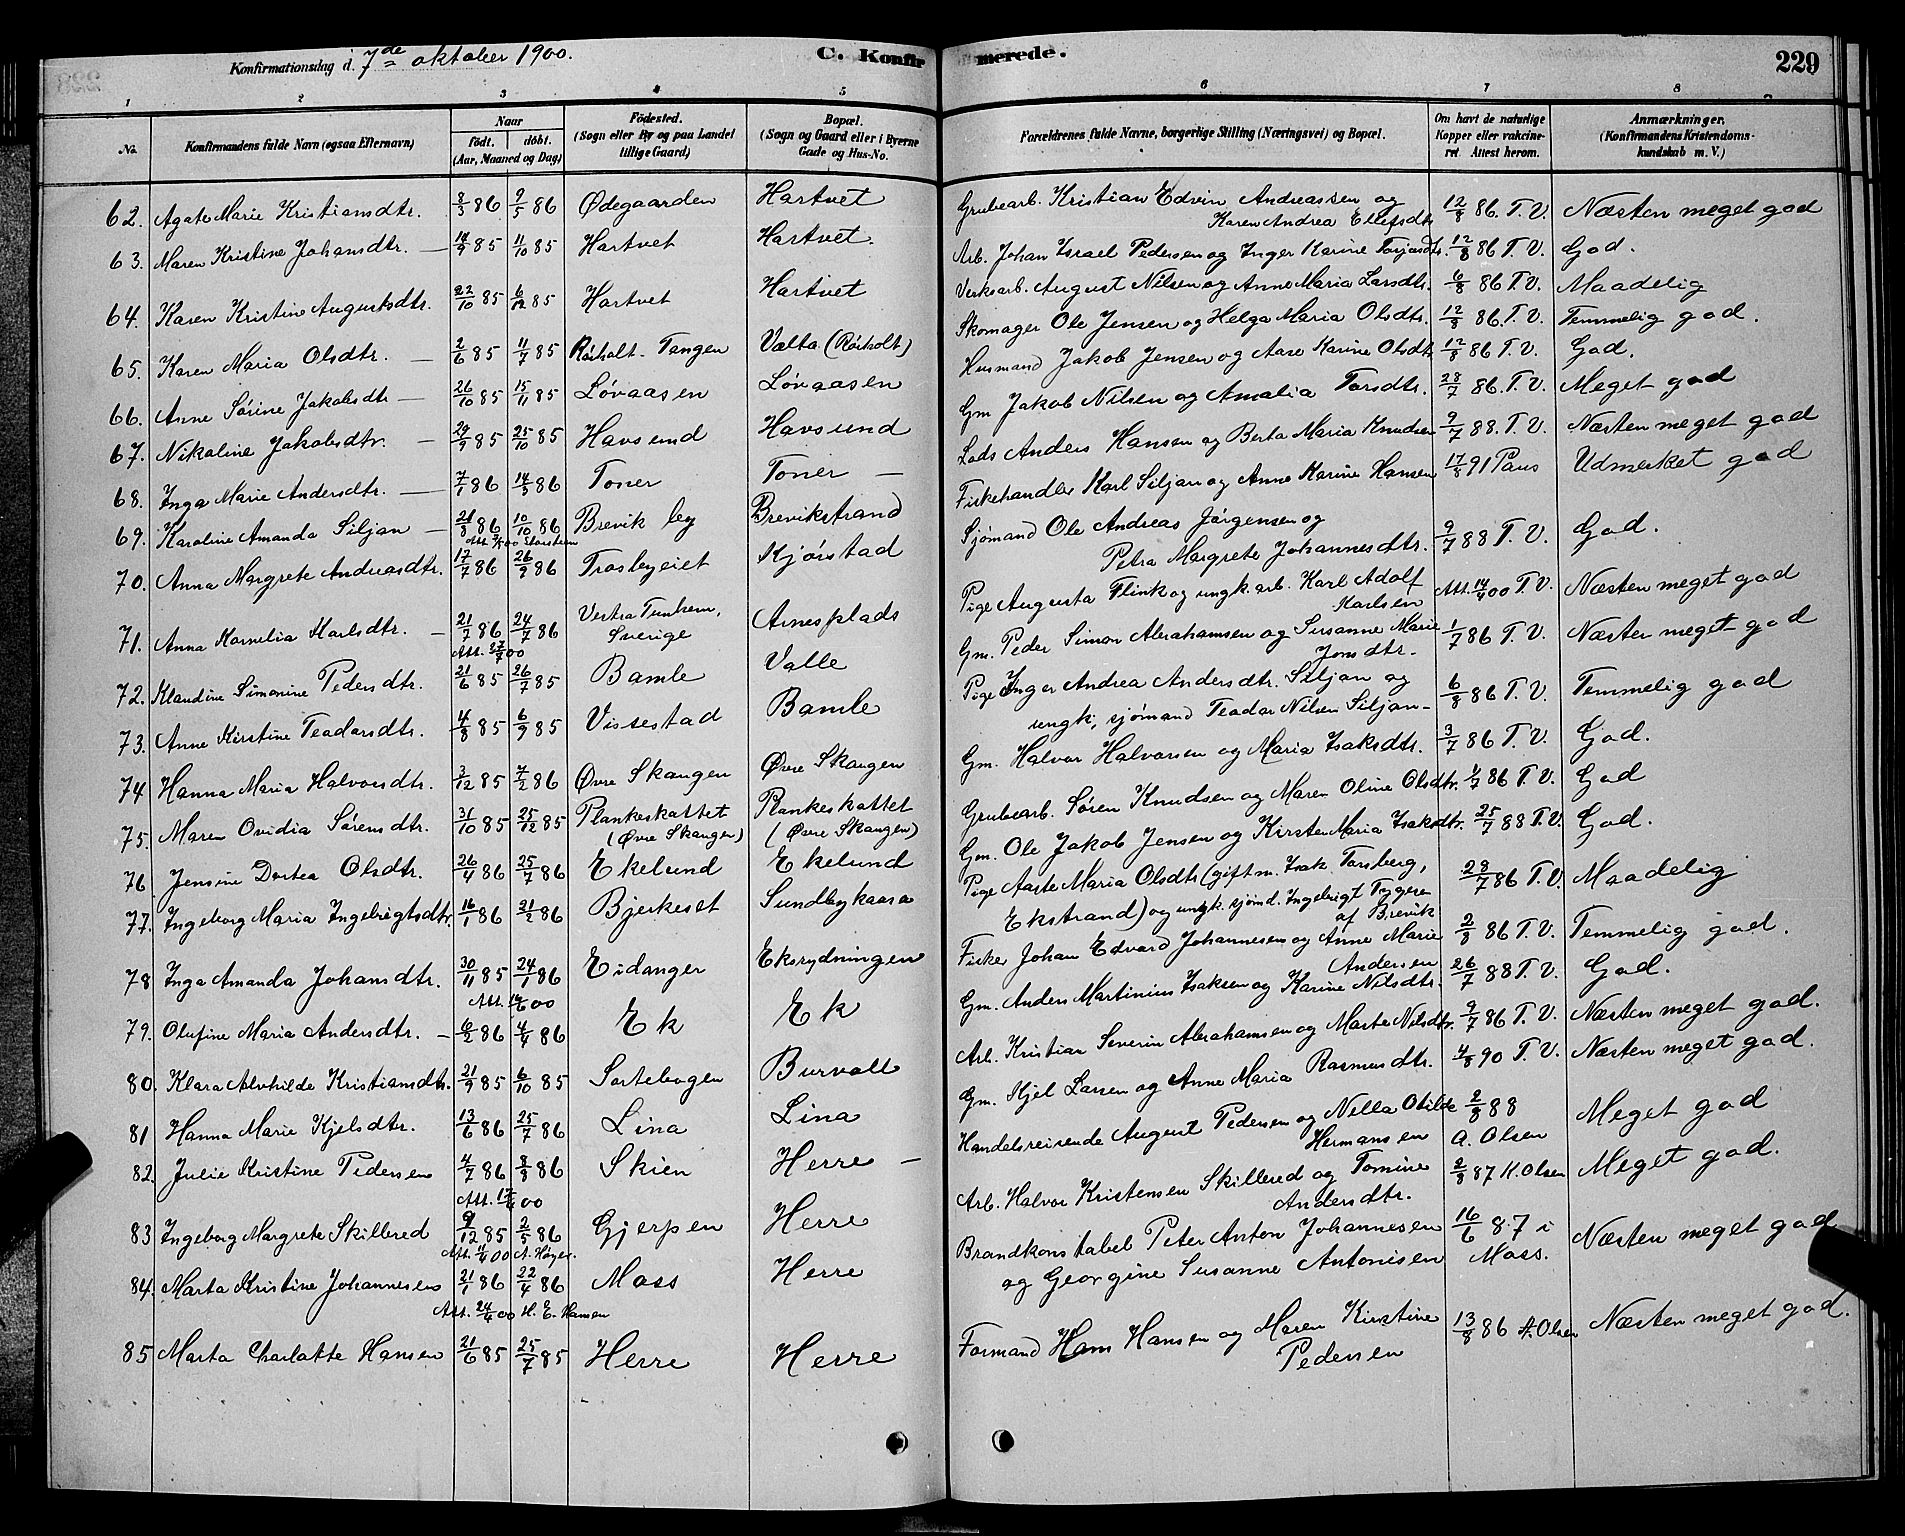 Konfirmationsdag d. 7de oktober 1900. C. Konfirmerede. 229
1 2 3 4 5 6 7 8
No. Konfirmandens fulde Navn (ogsaa Efternavn) Naar født, døbt. (Aar, Maaned og Dag) Fødested. (Sogn eller By og paa Landet tillige Gaard) Bopæl. (Sogn og Gaard eller i Byerne Gade og Hus-No. Forældrenes fulde Navne, borgerlige Stilling (Næringsvei) og Bopæl. Om havt de naturlige Kopper eller vakcineret Attest herom. Anmærkninger. (Konfirmandens Kristendomskundskab m. V.)
62. Agate Marie Kristiansdtr. 8/3 86 9/5 86 Ødegaarden Hartvet Grubearb. Kristian Edvin Andreassen og Karen Andrea Ellefsdtr. 12/8 86. T.V. Næsten meget god
63. Maren Kristine Johansdtr. — 14/9 85 11/10 85 Hartvet Hartvet. Arb. Johan Israel Pedersen og Inger Karine Torjusdtr. 12/8 86 T.V. God.
64. Karen Kristine Augustsdtr. 22/10 85 6/12 85 Hartvet Hartvet Verksarb. August Nilsen og Anne Maria Larsdtr. 6/8 86 T.V. Maadelig
65. Karen Maria Olsdtr. — 2/6 85 11/7 85 Rørholt-Tangen Valta (Rørholt) Skomager Ole Jensen og Helga Maria Olsdtr. 12/8 86. T.V. Temmelig god.
66. Anne Sørine Jakobsdtr — 26/10 85 15/11 85 Løvaasen Løvaasen Husmand Jakob Jensen og Aase Karine Olsdtr 12/8 86 T.V. God.
67. Nikoline Jakobsdtr. — 29/9 85 25/10 85 Havsund Havsund Gm Jakob Nilsen og Amalia Torsdtr. 28/7 86. T.V. Meget god
68. Inga Marie Andersdtr. — 7/1 86 14/3 86 Toner Toner — Lods Anders Hansen og Berta Maria Knudsen 9/7 88. T.V. Næsten meget god
69. Karoline Amanda Siljan — 21/8 86 10/10 86 Brevik by Brevikstrand Fiskehandler Karl Siljan og Anne Karine Hansen 17/8 91 Paus Udmerket god
70. Anna Margrete Andreasdtr. 17/7 86 26/9 86 Trosbyeiet Kjørstad Sjømand Ole Andreas Jørgensen og Petra Margrete Johannesdtr. 9/7 88 T.V. God.
71. Anna Kornelia Karlsdtr. — 21/7 86 24/7 86 Vestra Tunhem, Sverige Arnesplads Pige Augusta Flink og ungk. arb. Karl Adolf Karlsen Att. 14/4 00 T.V. Næsten meget god
72. Klaudine Simonine Pedersdtr. 21/6 85 26/7 85 Bamle Valle Gm. Peder Simon Abrahamsen og Susanne Marie Jonsdtr. 1/7 86 T.V. Næsten meget god
73. Anne Kirstine Teodorsdtr. 4/8 85 6/9 85 Vissestad Bamle Pige Inger Andrea Andersdtr. Siljan og ungk. sjømand Teodor Nilsen Siljan — 6/8 86 T.V. Temmelig god
74 Hanna Maria Halvorsdtr. 3/12 85 7/2 86 Øvre Skaugen Øvre Skaugen Gm. Halvor Halvorsen og Maria Isaksdtr. 3/7 86 T.V. God.
75. Maren Ovidia Sørensdtr. 31/10 85 25/12 85 Plankeskottet (Øvre Skaugen) Plankeskottet (Øvre Skaugen) Grubearb. Søren Knudsen og Maren Oline Olsdtr. 1/7 86 T.V. God
76 Jensine Dortea Olsdtr. 26/4 86 25/7 86 Ekelund Ekelund Gm. Ole Jakob Jensen og Kirsten Maria Isaksdtr. 25/7 88 T.V. God.
77. Ingeborg Maria Ingebrigtsdtr. 16/1 86 21/2 86 Bjerkeset Sundbykaasa Pige Aaste Maria Olsdtr (gift m. Isak Torsberg, Ekstrand) og ungk. sjømd. Ingebrigt Tygesen af Brevik 28/7 86 T.V. Maadelig
78 Inga Amanda Johansdtr. 30/11 85 24/1 86 Eidanger Eksrydningen Fisker Johan Edvard Johannesen og Anne Marie Andersen 2/8 86 T.V. Temmelig god.
79. Olufine Maria Andersdtr. — 6/2 86 4/4 86 Ek Ek Gm. Anders Martinius Isaksen og Karine Nilsdtr. 26/7 88 T.V. God.
80. Klara Alvhilde Kristiansdtr. 21/9 85 6/10 85 Sortebogen Burvall Arb. Kristian Severin Abrahamsen og Marte Nilsdtr. 9/7 86 T.V. Næsten meget god.
81 Hanna Marie Kjelsdtr. 13/6 86 25/7 86 Lina Lina Gm. Kjel Larsen og Anne Maria Rasmusdtr. 4/8 90 T.V. Næsten meget god.
82. Julie Kristine Pedersen 4/7 86 8/8 86 Skien Herre — Handelsreisende August Pedersen og Nella Otilde Hermansen 2/8 88 A. Olsen Meget god
83 Ingeborg Margrete Skillered 9/12 85 2/5 86 Gjerpen Herre Arb. Halvor Kristensen Skillered og Tomine Andersdtr. 2/8 87 H. Olsen Meget god.
84. Marta Kristine Johannesen 21/1 86 22/4 86 Moss Herre Brandkonstabel Peter Anton Johannesen og Georgine Susanne Antonisen 16/6 87 i Moss. Næsten meget god
Att. 24/4 00 H. E. Hansen
85 Marta Charlotte Hansen 21/6 85 25/7 85 Herre Herre Formand Hans Hansen og Maren Kirstine Pedersen 13/8 86 A. Olsen Næsten meget god.